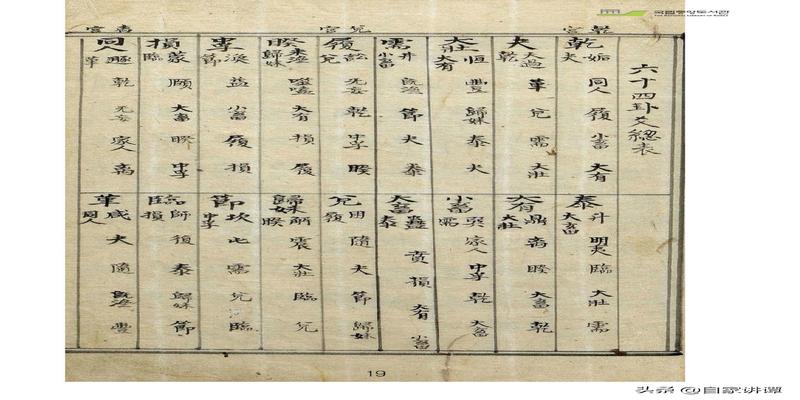 국립중앙도서관
乾宮
兌宮
离宮
六十四卦爻總表
乾 姤 同人 履 小畜 大有
夬
夬 大過 革 兌 需 大壯
乾
大壯 恒 豐 歸妹 泰 夬
大有
需 井 旣濟 節 夬 泰
小畜
履 訟 无妄 乾 中孚 睽
兌
睽 未濟 噬嗑 大有 損 履
歸妹
中孚 渙 益 小畜 履 損
節
損 蒙 頤 大畜 睽 中孚
臨
同人 遯 乾 无妄 家人 离
革
泰 升 明夷 臨 大壯 需
大畜
大有 鼎 离 睽 大畜 乾
大壯
小畜 巽 家人 中孚 乾 大畜
需
大畜 蠱 賁 損 大有 小畜
泰
兌 困 隨 夬 節 歸妹
履
歸妹 解 震 大壯 臨 兌
睽
節 坎 屯 需 兌 臨
中孚
臨 師 復 泰 歸妹 節
損
革 咸 夬 隨 旣濟 豐
同人
19
头条 @自家讲谭